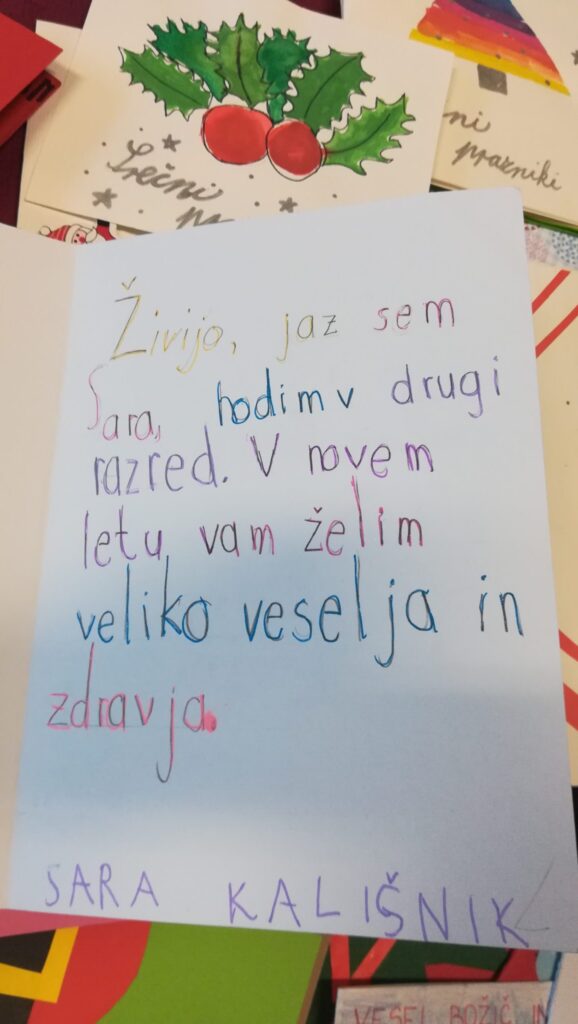 Srečni
ni
prazniki
Živijo, jaz sem
Sara, hodim v drugi
razred. V novem
letu vam želim
veliko veselja in
zdravja.
SARA KALIŠNIK
VESEL BOŽIČ IN